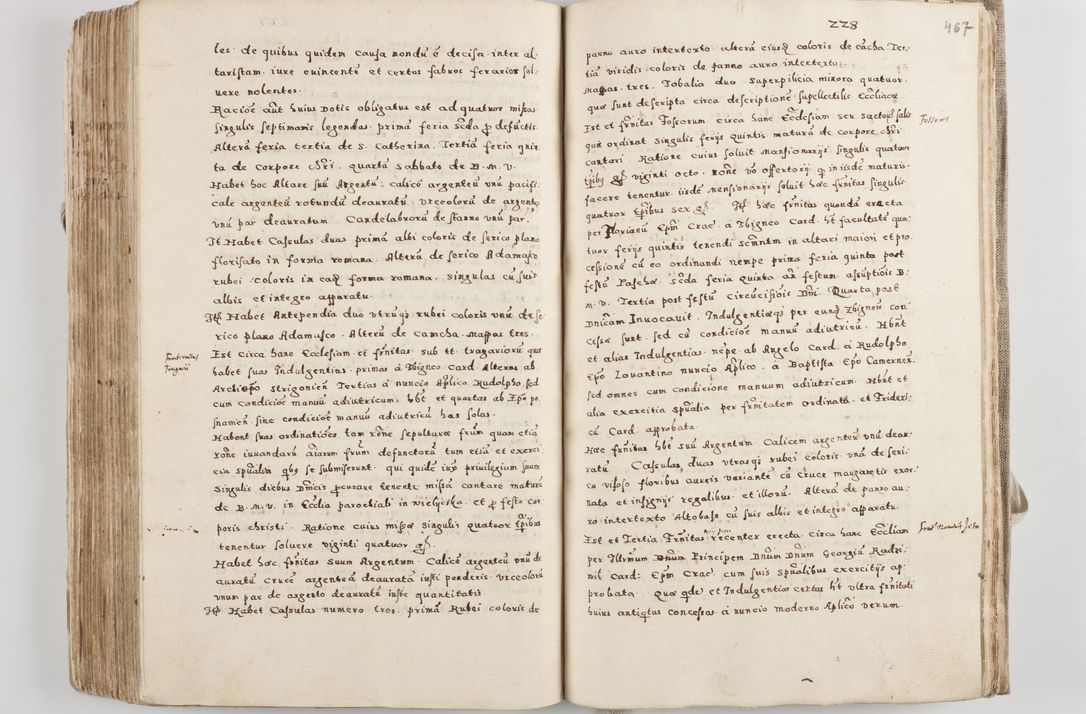 les de quibus quidem causa nondū ē decisa inter al
taristam iure euincente et certos fabros ferarios sol
uere nolentes.
Racioē aūt huius Dotis obligatus est ad quatuor missas
singulis septimanis legendas. prima feria scda ꝓ defūctis
Altera feria tertia de S. Catherina. Tertia feria quin
ta de corpore chri. quarta sabbato de B. M. V.
Habet hoc Altare suū Argentū: calicē argenteū vnū pacifi:
cale argenteū rotundū deauratū. vrceolorū de argento
vnū par deauratum. Candelabrorū de stanno vnū par.
It Habet Casulas duas primā albi coloris de serico plano
florisato in forma romana. Alterā de serico Adamasco
rubei coloris in eadē forma romana. singulas cū suis
albis et integro apparatu.
Itē Habet Antependia duo vtrūq rubei coloris vnū de se
rico plano Adamasco. Alterū de camcha. Mappas tres.
Est circa hanc Ecclesiam et frnitas sub tt. tragariorū quæ
habet suas Indulgentias. primas á Sbigneo Card. Alteras ab
Archiepō strigonien Tertias á nuncio Aplico Rudolpho. sed
cum condicioē manuū adiutricum. hbt et quartas ab Epō po
snanień sine condicioē manuū adiutricū has solas.
Habent suas ordinatiōes tam rōne sepulturæ frum quam etiā
rōne iuuandarū aīarum frum defunctorū tum etiā et exerci
cia spūalia qbs se submiserunt. qui quidē iuxo priuilegium suum
singulis diebus Dnicis ꝓcurare tenentē missā cantare maturā
de B. M. V. in Ecclia parochiali in wieliczko. et ꝓ festo cor
poris christi. Ratione cuius missæ singulis quatuor tpibus
tenentur soluere viginti quatuor gr.
Habet hæc frnitas suum Argentum. Calicē argenteū vnū de
auratū crucē argenteā deauratā iusti ponderis. vrceolorū
vnum par de argento deauratū iustæ quantitatis.
Itē Habet Casulas numero tres. primā Rubei coloris de
Fraternitas
Tragarū
228
467
panno auro intertexto alterā eiusdē coloris de cācha Ter
tiā viridis coloris de panno auro intertexto.
Mappas tres. Tobalia duo superpilicia minora quatuor
quæ sunt descripta circa descriptionē supellectilis Eccliæ.
Est et frnitas Fossorum circa hanc Ecclesiam seu sactorū salis
quæ ordinat singulis ferijs quintis maturā de corpore chri
cantari. Ratione cuius soluit Mansionarijs singulis quatuor
tpibus gr viginti octo. rōne vō offertorij ꝙ in iisdē maturis
facere tenentur iisdē mensionarijs soluit hæc frnitas singulis
quatuor tpibus sex gr. Itē hæc frnitas quondā erecta
per Florianū Epm Crac. á Sbigneo Card. ht facultatē qua
tuor ferijs quintis tenendi scmntm in altari maiori et pro
cessionē cū eo ordinandi nempe prima feria quinta post
festū Paschæ. scda feria quinta añ festum assūptiōis B:
M. V. Tertia post festū circūcisiōis Dni. Quarta post
Dnicam Inuocauit. Indulgentiæq per eundē Sbigneū con
cessæ sunt sed cū condicioē manuū adiutricū. Hbnt
et alias Indulgentias. nēpe ab Angelo Card. á Rudolpho
Epō Louantino nuncio Aplico. á Baptista Epō Camerneń.
sed omnes cum condicione manuum adiutricum. Hbnt et
alia exercitia spūalia per frnitatem ordinata et Frideri:
cū Card. approbata.
Hæc frnitas hbt suū Argentum. Calicem argenteū vnū deau:
ratū. Casulas duas vtrasq rubei coloris. vnā de seri:
co visoso floribus aureis variante cū cruce margaritis exor
nata et insignijs regalibus et illorū. Alterā de panno au:
ro intertexto Altobaso cū suis albis et integro apparatu.
Est et Tertia frnitas recenter erecta circa hanc Eccliam
per Illrmum Dnum Principem Dnum Dnum Georgiū Radzi:
wil Card: Epm Crac. cum suis spūalibus exercitijs ap:
probata. Quæ qde et Indulgentias certas ht vltra frnitati
huius antiqtus concessas á nuncio moderno Aplico verum.
Fossorum